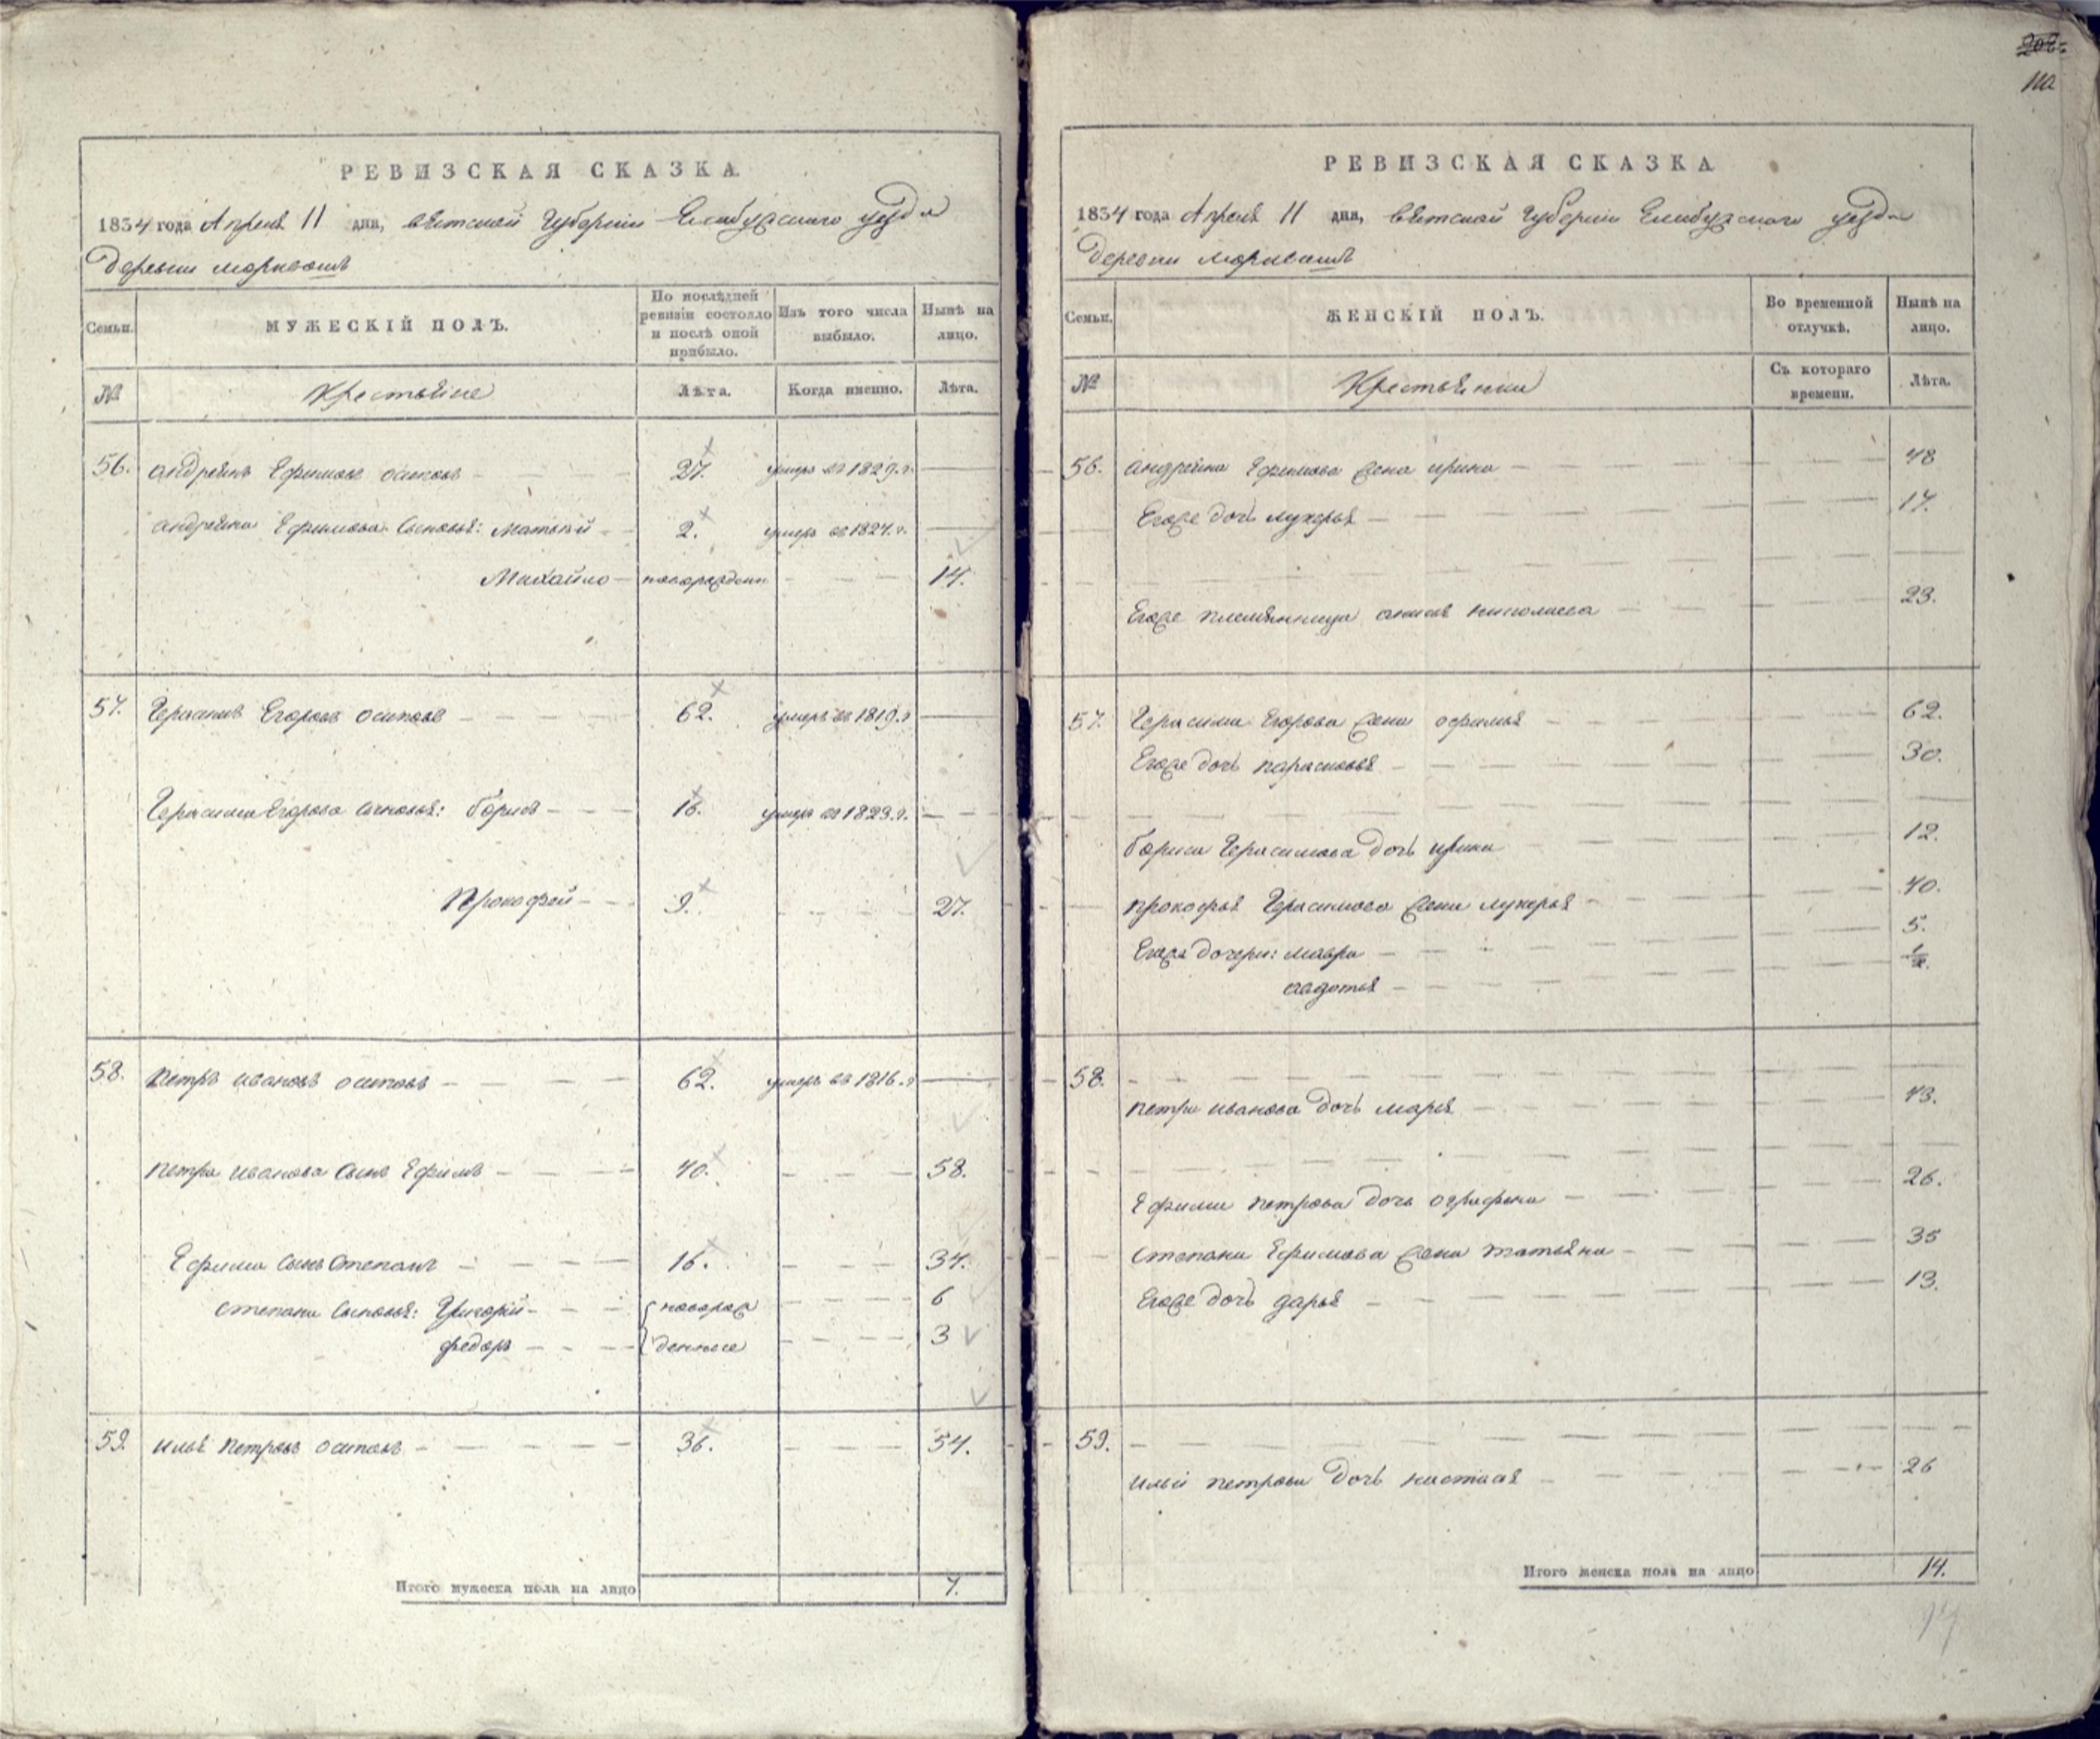 РЕВИЗСКАЯ СКАЗКА
1834 года Апреля 11 дня, вятской Губернии Елабужского уезда
деревни
Семьи. МУЖЕСКІЙ ПОЛЪ. По послѣдней ревизіи состояло и послѣ оной прибыло. Изъ того числа выбыло. Нынѣ на лицо.
№ Крестьяне Лѣта. Когда именно. Лѣта.
56. андреянъ Ефимовъ осиповъ 27. умеръ въ 1829.г.
андреяна Ефимова Сыновья: Матвѣй 2. умеръ въ 1827.г.
Михайло новорожден 14.
57. Герасимъ Егоровъ осиповъ 62. умеръ въ 1819.г
Герасима Егорова сыновья: борисъ 16. умеръ въ 1823.г.
Прокофей 9. 27.
58. Петръ ивановъ осиповъ 62. умеръ въ 1816.г
петра иванова Сынъ Ефимъ 40. 58.
Ефима сынъ Степанъ 16. 34.
степана Сыновья: Григорій новорож 6
федоръ денные 3
59. илья петровъ осиповъ 36. 54.
Итого мужеска пола на лицо 7.
202
110
РЕВИЗСКАЯ СКАЗКА
1834 года Апреля 11 дня, вятской Губернии Елабужского уезда
деревни
Семьи. ЖЕНСКІЙ ПОЛЪ. Во временной отлучкѣ. Нынѣ на лицо.
№ Крестьянки Съ котораго времени. Лѣта.
56. андреяна Ефимова жена ирина 48
Егоже дочь лукерья 17.
Егоже племянница анисья николаева 23.
57. Герасима Егорова жена офимья 62.
Егоже дочь парасковья 30.
бориса Герасимова дочь ирина 12.
прокофья Герасимова жена лукерья 40.
Егоже дочери: мавра 5.
авдотья ½.
58.
петра иванова дочь марья 43.
Ефима петрова дочь ографена 26.
степана Ефимова жена татьяна 35
Егоже дочь дарья 13.
59.
ильи петрова дочь настасья 26
Итого женска пола на лицо 14.